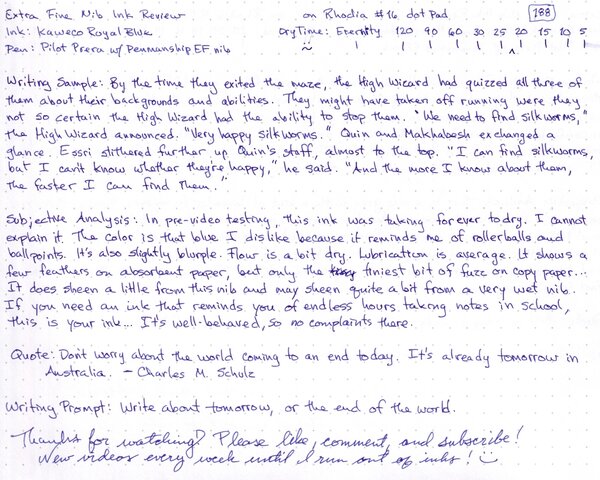 Extra Fine Nib Ink Review on Rhodia #16 dot Pad 188
Ink: Kaweco Royal Blue DryTime: Eternity 120 90 60 30 25 20 15 10 5
Pen: Pilot Prera w/ Penmanship EF nib
Writing Sample: By the time they exited the maze, the High Wizard had quizzed all three of
them about their backgrounds and abilities. They might have taken off running were they
not so certain the High Wizard had the ability to stop them. "We need to find silkworms,"
the High Wizard announced. "Very happy silkworms." Quin and Makhabesh exchanged a
glance. Essri slithered further up Quin's staff, almost to the top. "I can find silkworms,
but I can't know whether they're happy," he said. "And the more I know about them,
the faster I can find them."
Subjective Analysis: In pre-video testing, this ink was taking forever to dry. I cannot
explain it. The color is that blue I dislike because it reminds me of rollerballs and
ballpoints. It's also slightly blurple. Flow is a bit dry. Lubrication is average. It shows a
few feathers on absorbent paper, but only the tiniest bit of fuzz on copy paper...
It does sheen a little from this nib and may sheen quite a bit from a very wet nib.
If you need an ink that reminds you of endless hours taking notes in school,
this is your ink... It's well-behaved, so no complaints there.
Quote: Don't worry about the world coming to an end today. It's already tomorrow in
Australia. - Charles M. Schulz
Writing Prompt: Write about tomorrow, or the end of the world.
Thanks for watching! Please like, comment, and subscribe!
New videos every week until I run out of inks!